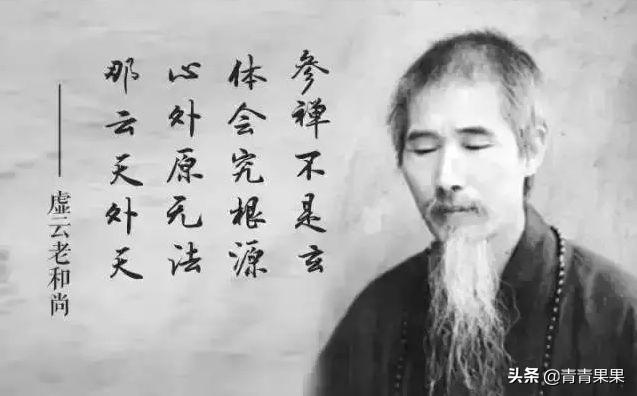 参禅不是玄
体会究根源
心外原无法
那云天外天
——虚云老和尚
头条 @青青果果